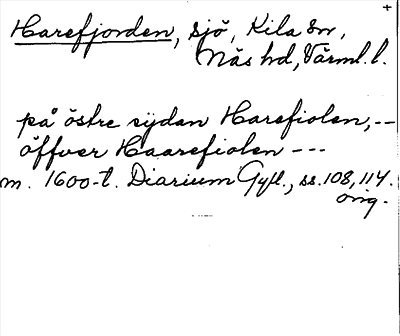 +
Harefjorden, sjö, Kila sn,
Näs hd, Värml. l.
på östre sydan Harefiolen, --
öffver Haarefiolen ---
m. 1600-t. Diarium Gyll., ss. 108, 114.
orig.